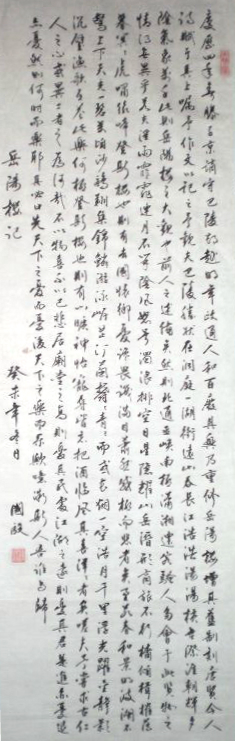 慶曆四年春滕子京謫守巴陵郡越明年政通人和百廢具興乃重修岳陽樓增其舊制刻唐賢今人
詩賦于其上囑予作文以記之予觀夫巴陵勝狀在洞庭一湖銜遠山吞長江浩浩湯湯橫無際涯朝暉夕
陰氣象萬千此則岳陽樓之大觀也前人之述備矣然則北通巫峽南極瀟湘遷客騷人多會于此覽物之
情得無異乎若夫霪雨霏霏連月不開陰風怒號濁浪排空日星隱耀山岳潛形商旅不行檣傾楫摧薄
暮冥冥虎嘯猿啼登斯樓也則有去國懷鄉憂讒畏譏滿目蕭然感極而悲者矣至若春和景明波瀾不
驚上下天光一碧萬頃沙鷗翔集錦鱗游泳岸芷汀蘭郁郁青青而或長煙一空皓月千里浮光躍金靜影
沉璧漁歌互答此樂何極登斯樓也則有心曠神怡寵辱皆忘把酒臨風其喜洋洋者矣嗟夫予嘗求古仁
人之心或異二者之爲何哉不以物喜不以己悲居廟堂之高則憂其民處江湖之遠則憂其君是進亦憂退
亦憂然則何時而樂耶其必曰先天下之憂而憂後天下之樂而樂歟噫微斯人吾誰與歸
岳陽樓記 癸未年冬月 國